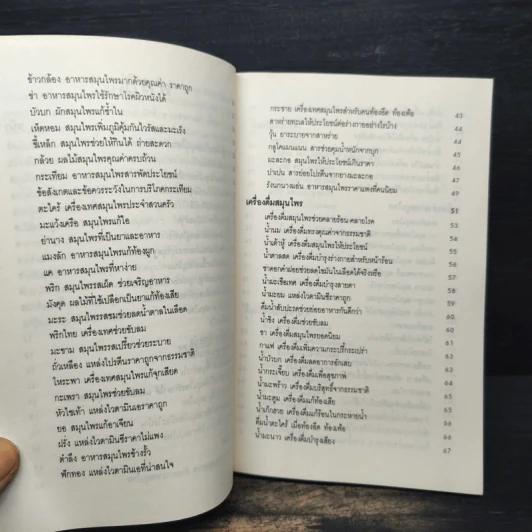 ข้าวกล้อง อาหารสมุนไพรมากด้วยคุณค่า ราคาถูก
ข่า อาหารสมุนไพรใช้รักษาโรคผิวหนังได้
บัวบก ผักสมุนไพรแก้ช้ำใน
เห็ดหอม สมุนไพรเพิ่มภูมิคุ้มกันไวรัสและมะเร็ง
ขี้เหล็ก สมุนไพรช่วยให้กินได้ ถ่ายสะดวก
กล้วย ผลไม้สมุนไพรคุณค่าครบถ้วน
กระเทียม อาหารสมุนไพรสารพัดประโยชน์
ข้อสังเกตและข้อควรระวังในการบริโภคกระเทียม
ตะไคร้ เครื่องเทศสมุนไพรประจำสวนครัว
มะแว้งเครือ สมุนไพรแก้ไอ
ย่านาง สมุนไพรที่เป็นยาและอาหาร
แมงลัก อาหารสมุนไพรแก้ท้องผูก
แค อาหารสมุนไพรที่หาง่าย
พริก สมุนไพรรสเผ็ด ช่วยเจริญอาหาร
มังคุด ผลไม้ที่ใช้เปลือกเป็นยาแก้ท้องเสีย
มะระ สมุนไพรรสขมช่วยลดน้ำตาลในเลือด
พริกไทย เครื่องเทศช่วยขับลม
มะขาม สมุนไพรรสเปรี้ยวช่วยระบาย
ถั่วเหลือง แหล่งโปรตีนราคาถูกจากธรรมชาติ
โหระพา เครื่องเทศสมุนไพรแก้จุกเสียด
กะเพรา สมุนไพรช่วยขับลม
หัวไชเท้า แหล่งไวตามินเอราคาถูก
ยอ สมุนไพรแก้อาเจียน
ฝรั่ง แหล่งไวตามินซีราคาไม่แพง
ตำลึง อาหารสมุนไพรข้างรั้ว
ฟักทอง แหล่งไวตามินเอที่น่าสนใจ
กระชาย เครื่องเทศสมุนไพรสำหรับคนท้องอืด ท้องเฟ้อ 43
สาหร่ายทะเลให้ประโยชน์ต่อร่างกายอย่างไรบ้าง 44
วุ้น ยาระบายจากสาหร่าย 44
กลูโคแมนแนน สารช่วยคุมน้ำหนักจากบุก 46
มะละกอ สมุนไพรให้ประโยชน์เกินราคา 47
ปาเปน สารย่อยโปรตีนจากยางมะละกอ 48
รังนกนางแอ่น อาหารสมุนไพรราคาแพงที่คนนิยม 49
เครื่องดื่มสมุนไพร 51
เครื่องดื่มสมุนไพรช่วยคลายร้อน-คลายโรค 52
น้ำนม เครื่องดื่มทรงคุณค่าจากธรรมชาติ 53
น้ำเต้าหู้ เครื่องดื่มสมุนไพรให้ประโยชน์ 54
น้ำตาลสด เครื่องดื่มบำรุงร่างกายสำหรับหน้าร้อน 55
ชาดอกคำฝอยช่วยลดไขมันในเลือดได้จริงหรือ 56
น้ำมะเขือเทศ เครื่องดื่มบำรุงสายตา 57
น้ำมะยม แหล่งไวตามินซีราคาถูก 58
ดื่มน้ำสับปะรดช่วยย่อยอาหารกันดีกว่า 58
น้ำขิง เครื่องดื่มช่วยขับลม 59
ชา เครื่องดื่มสมุนไพรยอดนิยม 60
กาแฟ เครื่องดื่มเพิ่มความกระปรี้กระเปร่า 61
น้ำบัวบก เครื่องดื่มลดอาการอักเสบ 62
น้ำกระเจี๊ยบ เครื่องดื่มเพื่อสุขภาพ 62
น้ำมะพร้าว เครื่องดื่มบริสุทธิ์จากธรรมชาติ 63
น้ำมะตูม เครื่องดื่มแก้ท้องเสีย 64
น้ำเก๊กฮวย เครื่องดื่มแก้ร้อนในกระหายน้ำ 65
ดื่มน้ำตะไคร้ เมื่อท้องอืด ท้องเฟ้อ 66
น้ำมะนาว เครื่องดื่มบำรุงเสียง 67